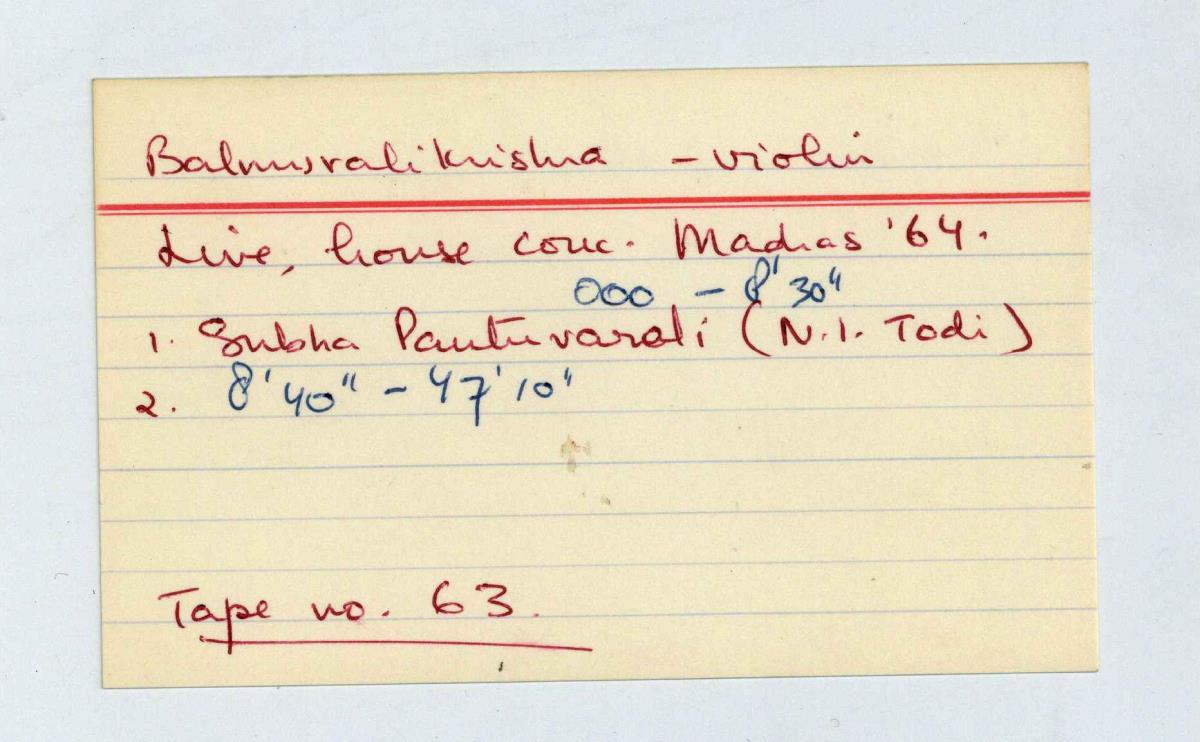 Balmuralikrishna - violin
Live, house conc. Madras '64.
000 - 8' 30"
1. Subha Pantuvarali (N.I. Todi)
2. 8' 40" - 47' 10"
Tape no. 63.